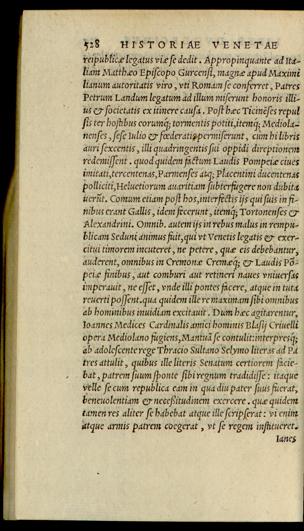 528 HISTORIAE VENETAE
reipublicæ legatus viæ se dedit. Appropinquante ad Ita-
liam Matthæo Episcopo Gurcensi, magnæ apud Maximi
lianum autoritatis viro, vti Romam se conferret, Patres
Petrum Landum legatum ad illum miserunt honoris illi-
us & societatis ex itinere causa. Post hæc Ticineses repul
sis ter hostibus eorumq́; tormentis potiti, itemq́; Mediola-
nenses, sese Iulio & fœderatis permiserunt, cum hi libris
auri sexcentis, illi quadringentis sui oppidi direptionem
redemissent. quod quidem factum Laudis Pompeiæ ciues
imitati, tercentenas, Parmenses atq́; Placentini ducentenas
polliciti, Heluetiorum auaritiam subterfugere non dubita
uerũt. Comum etiam post hos, interfectis ijs qui suis in fi-
nibus erant Gallis, idem fecerunt, itemq́; Tortonenses &
Alexandrini. Omnib. autem ijs in rebus malus in rempu-
blicam Seduni animus fuit, qui vt Venetis legatis & exer-
citui timorem incuteret, ne petere, quæ eis debebantur,
auderent, omnibus in Cremonæ Cremæq́; & Laudis Põ-
peiæ finibus, aut comburi aut retineri naues vniuersas
imperauit, ne esset, vnde illi pontes facere, atque in tuta
reuerti possent. qua quidem ille re maximam sibi omnibus
ab hominibus inuidiam excitauit. Dum hæc agitarentur,
Ioannes Medices Cardinalis amici hominis Blasij Criuelli
opera Mediolano fugiens, Mantuã se contulit: interpresq́;
ab adolescente rege Thracio Sultano Selymo literas ad Pa
tres attulit, quibus ille literis Senatum certiorem facie-
bat, patrem suum sponte sibi regnum tradidisse: itaque
velle se cum republica eam in qua diu pater suus fuerat,
beneuolentiam & necessitudinem exercere. quæ quidem
tamen res aliter se habebat atque ille scripserat: vi enim
atque armis patrem coegerat, vt se regem institueret.
Ianes